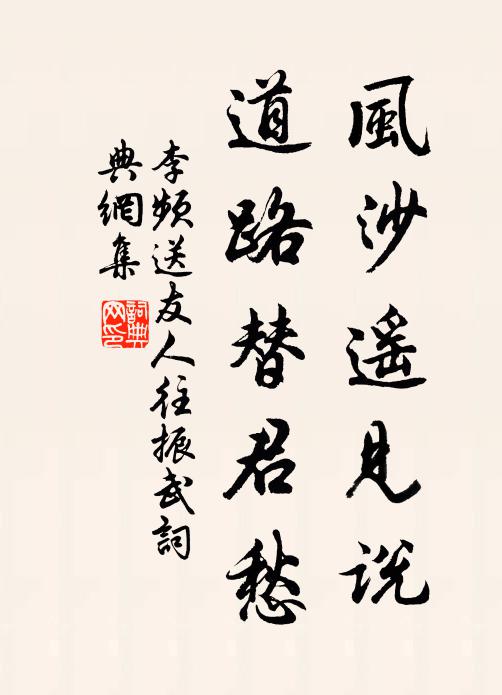 風沙遥見说
道路替君愁
李频送友人往振武詞
典網集
詞典
网印